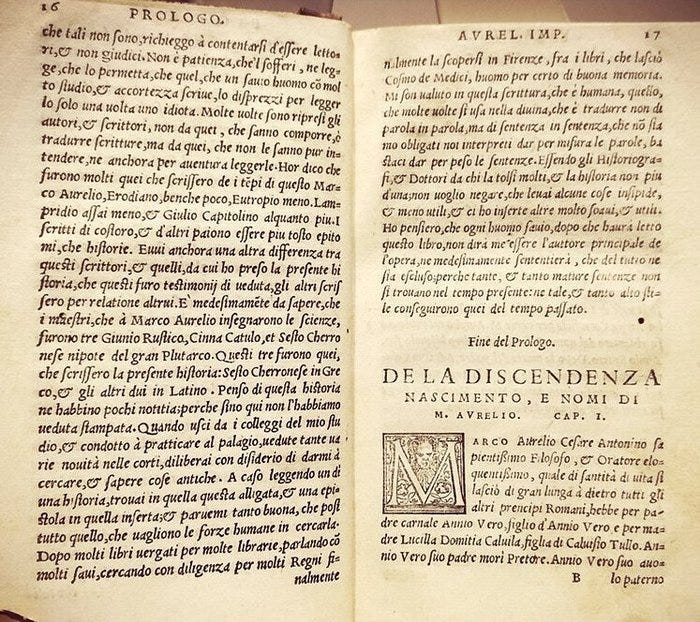 16
PROLOGO.
che tali non sono, richieggo à contentarsi d'essere letto-
ri, & non giudici. Non è patienza, che'l sofferi, ne leg-
ge, che lo permetta, che quel, che un sauio huomo cō mol
to studio, & accortezza scriue, lo disprezzi per legger
lo solo una uolta uno idiota. Molte uolte sono ripresi gli
autori, & scrittori, non da quei, che sanno comporre, è
tradurre scritture, ma da quei, che non le sanno pur in-
tendere, ne anchora per auentura leggerle. Hor dico che
furono molti quei che scrissero de i tēpi di questo Mar-
co Aurelio, Erodiano, benche poco, Eutropio meno. Lam-
pridio assai meno, & Giulio Capitolino alquanto piu. I
scritti di costoro, & d'altri paiono essere piu tosto epito
mi, che historie. Euui anchora una altra differenza tra
questi scrittori, & quelli, da cui ho preso la presente hi
storia, che questi furo testimonij di ueduta, gli altri scris
sero per relatione altrui. E' medesimamēte da sapere, che
i maestri, che à Marco Aurelio insegnarono le scienze,
furono tre Giunio Rustico, Cinna Catulo, et Sesto Cherro
nese nipote del gran Plutarco. Questi tre furono quei,
che scrissero la presente historia: Sesto Cherronese in Gre
co, & gli altri dui in Latino. Penso di questa historia
ne habbino pochi notitia; perche sino qui non l'habbiamo
ueduta stampata. Quando usci da i collegi del mio stu
dio, & condotto à pratticare al palagio, uedute tante ua
rie nouità nelle corti, diliberai con disiderio di darmi à
cercare, & sapere cose antiche. A caso leggendo un dì
una historia, trouai in quella questa alligata, & una epi-
stola in quella inserta; & paruemi tanto buona, che posi
tutto quello, che uagliono le forze humane in cercarla.
Dopo molti libri uergati per molte librarie, parlando cō
molti saui, cercando con diligenza per molti Regni fi-
nalmente
AVREL. IMP.
17
nalmente la scopersi in Firenze, fra i libri, che lasciò
Cosmo de Medici, huomo per certo di buona memoria.
Mi son ualuto in questa scrittura, che è humana, quello,
che molte uolte si usa nella diuina, che è tradurre non di
parola in parola, ma di sentenza in sentenza, che nō sia
mo obligati noi interpreti dar per misura le parole, ba
staci dar per peso le sentenze. Essendo gli Historiogra-
fi, & Dottori da chi la tolsi molti, & la historia non piu
d'una; non uoglio negare, che leuai alcune cose insipide,
& meno utili, & ci ho inserte altre molto soaui, & utili.
Ho pensiero, che ogni huomo sauio, dopo che haurà letto
questo libro, non dirà me essere l'auttore principale de
l'opera, ne medesimamente sentenziarà, che del tutto ne
sia escluso; perche tante, & tanto mature sentenze non
si trouano nel tempo presente: ne tale, & tanto alto sti-
le conseguirono quei del tempo passato.
Fine del Prologo.
DE LA DISCENDENZA
NASCIMENTO, E NOMI DI
M. AVRELIO. CAP. I.
MARCO Aurelio Cesare Antonino sa
pientissimo Filosofo, & Oratore elo-
quentissimo, quale di santità di uita si
lasciò di gran lunga à dietro tutti gli
altri prencipi Romani, hebbe per pa-
dre carnale Annio Vero, figlio d'Annio Vero e per ma-
dre Lucilla Domitia Caluila, figlia di Caluisio Tullo. An-
nio Vero suo padre morì Pretore. Annio Vero suo auo-
B lo paterno